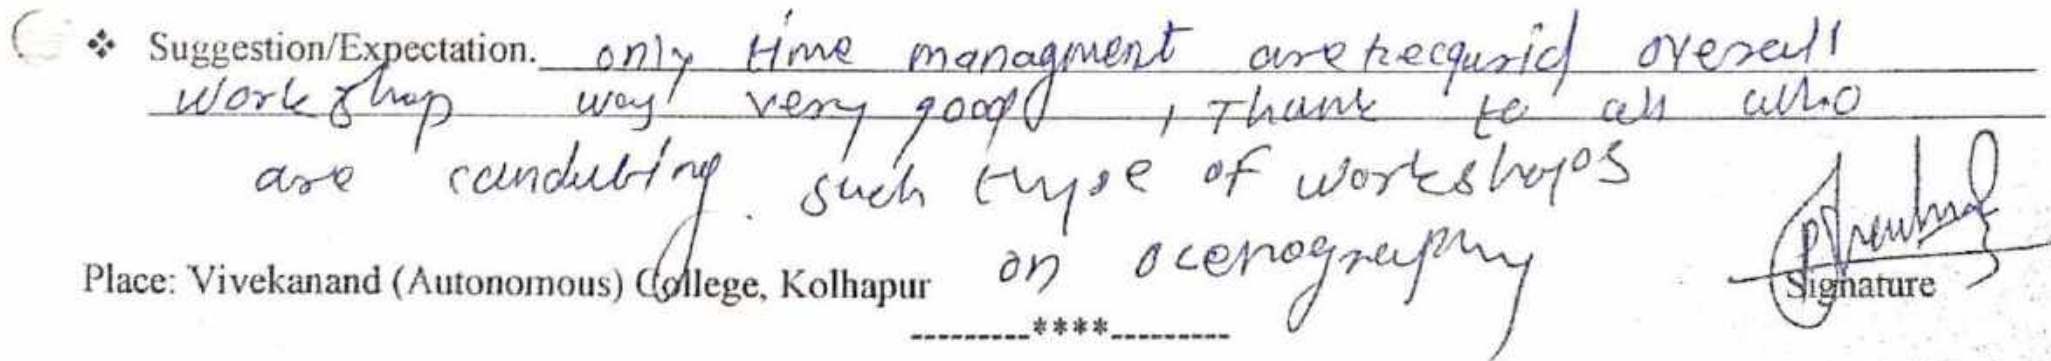 ❖ Suggestion/Expectation. only time managment are recqurid overall
workshop was very good, Thank to all who
are conducting such type of workshops
on ocenography
Place: Vivekanand (Autonomous) College, Kolhapur
Signature
---------****---------